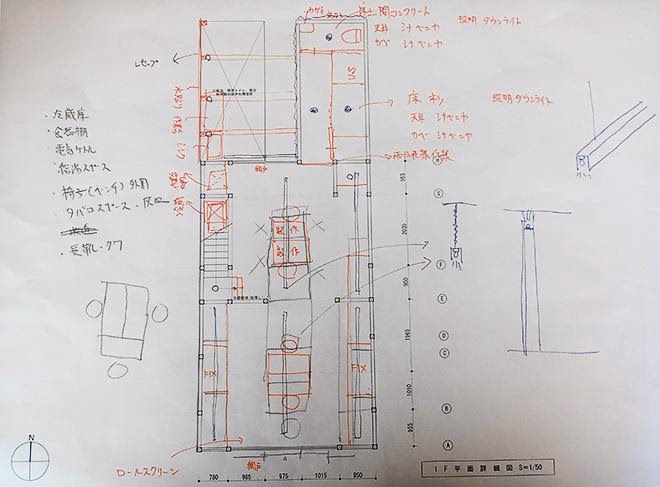 カガミ
床 土間コンクリート
天井 シナベニヤ
カベ シナベニヤ
照明 ダウンライト
レセップ
水切り
作業台
シンク
SU
床 杉
天井 シナベニヤ
カベ シナベニヤ
照明 ダウンライト
・冷蔵庫
・食器棚
・電気ケトル
・給湯スペース
・椅子(ベンチ) 外用
・タバコスペース・灰皿
・長靴・クワ
網戸
製作
製作
FIX
FIX
H
G
F
E
D
C
B
A
955
2025
950
1965
1010
955
ロールスクリーン
網戸
780
985
975
1015
950
N
1F 平面詳細図 S=1/50